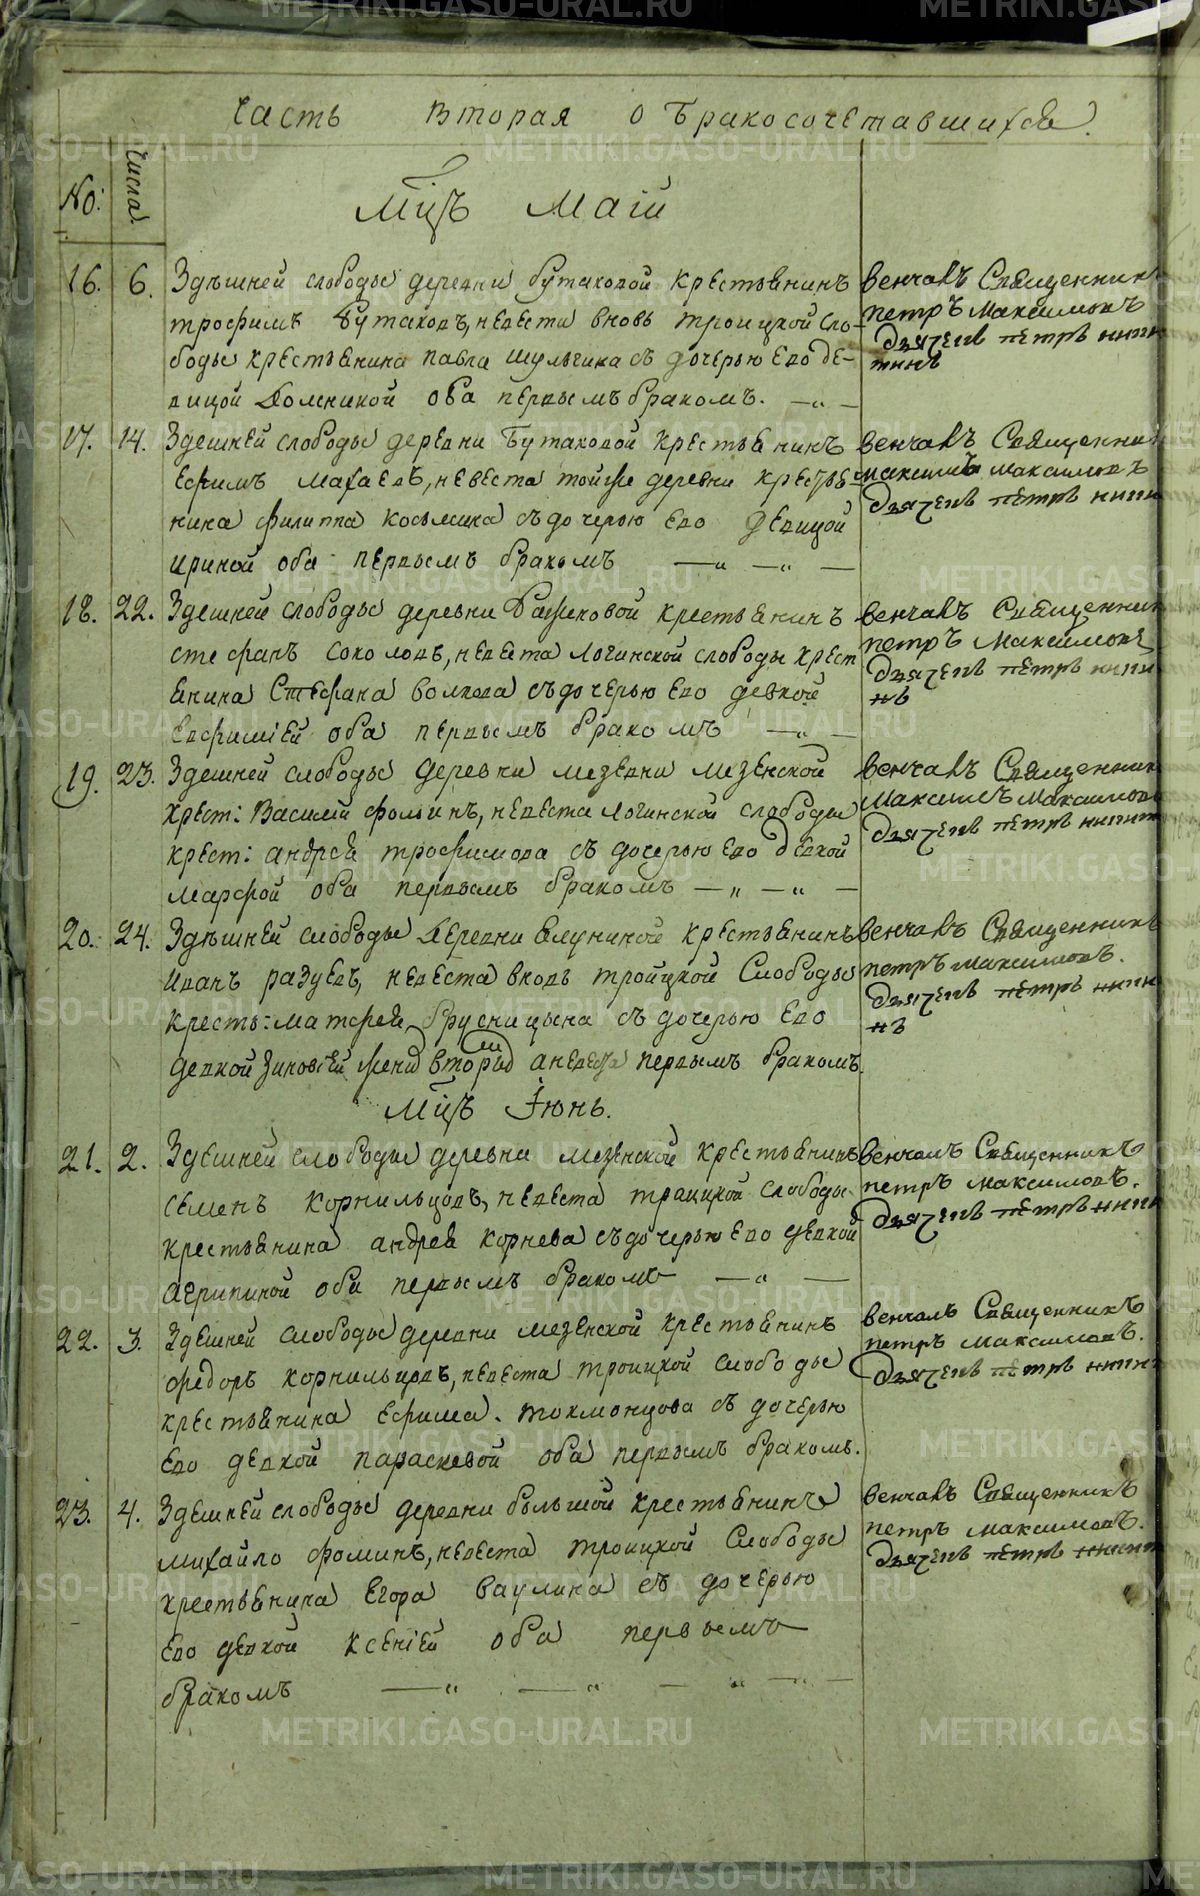 Часть вторая о бракосочетавшихся.
№: числа
Мцъ Маiй
16. 6. Здѣшней слободы деревни бутаковой крестьянинъ
трофимъ Бутаковъ, невеста вновь троицкой сло-
боды крестьянина павла шульгина съ дочерью ево де-
вицой Домникой оба первымъ бракомъ.
венчалъ Священникъ
петръ Максимовъ
дьячекъ петръ
17. 14. Здешней слободы деревни Бутаковой крестьянинъ
Ефимъ Махаевъ, невеста тойже деревни крестья-
нина филиппа косьмина съ дочерью ево девицой
ириной оба первымъ бракомъ
венчалъ Священникъ
максимъ максимовъ
дьячекъ петръ
18. 22. Здешней слободы деревни крестьянинъ
стефанъ соколовъ, невеста логинской слободы крест
янина Стефана волкова съ дочерью ево девкой
Евфимiей оба первымъ бракомъ
венчалъ Священникъ
петръ Максимовъ
дьячекъ петръ
19. 23. Здешней слободы деревни мезенской
крест: Василий фоминъ, невеста логинской слободы
крест: андрея трофимова съ дочерью ево девкой
марфой оба первымъ бракомъ
венчалъ Священникъ
Максимъ Максимовъ
дьячекъ петръ
20. 24. Здѣшней слободы деревни крестьянинъ
Иванъ разуевъ, невеста вновь тройцкой Слободы
кресть: матфея брусницына съ дочерью ево
девкой Зиновiей жених вторым а невеста первымъ бракомъ.
венчалъ Священникъ
петръ Максимовъ.
дьячекъ петръ
Мцъ Iюнь.
21. 2. Здешней слободы деревни мезенской крестьянинъ
семенъ корнильцовъ, невеста троицкой слободы
крестьянина андрея корнева съ дочерью ево девкой
агрипиной оба первымъ бракомъ
венчалъ Священникъ
петръ максимовъ.
дьячекъ петръ
22. 3. Здешней слободы деревни мезенской крестьянинъ
федоръ корнильцовъ, невеста троицкой слободы
крестьянина ефима. токмонцова съ дочерью
ево девкой парасковой оба первымъ бракомъ.
венчалъ Священникъ
петръ максимовъ.
дьячекъ петръ
23. 4. Здешней слободы деревни большой крестьянинъ
михайло фоминъ, невеста троицкой Слободы
крестьянина Егора ваулина съ дочерью
ево девкой ксенiей оба первымъ
бракомъ
венчалъ Священникъ
петръ максимовъ.
дьячекъ петръ
METRIKI.GASO-URAL.RU